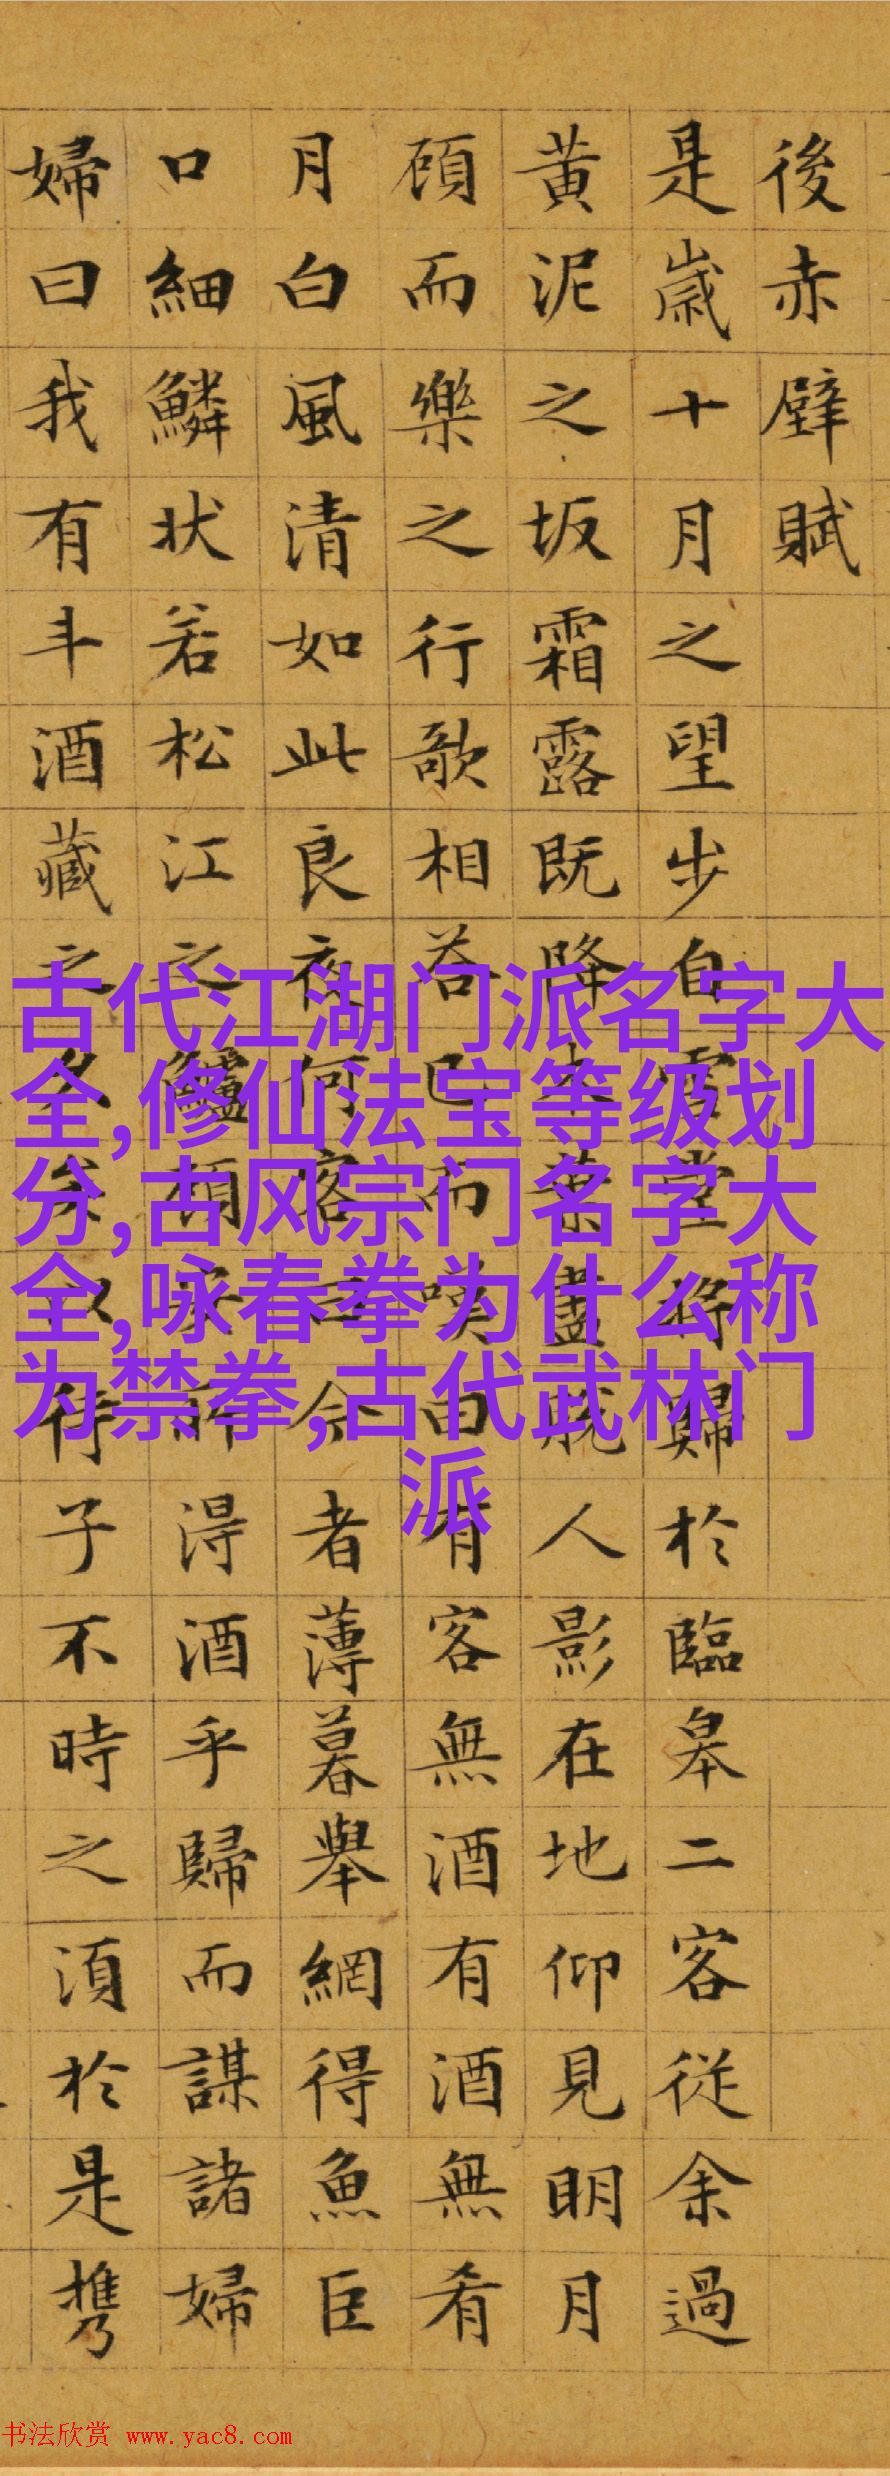 後赤壁賦
是歲十月之望步自雪堂將歸於臨皋二客從余過
黃泥之坂霜露既降木葉盡脫人影在地仰見明月
頋而樂之行歌相答已而嘆曰有客無酒有酒無肴
月白風清如此良夜何客曰今者薄暮舉網得魚巨
口細鱗狀若松江之鱸頋安所得酒乎歸而謀諸婦
婦曰我有斗酒藏之久矣以待子不時之須於是携
古代江湖门派名字大
全,修仙法宝等级划
分,古风宗门名字大
全,咏春拳为什么称
为禁拳,古代武林门
派
书法欣赏 www.yac8.com